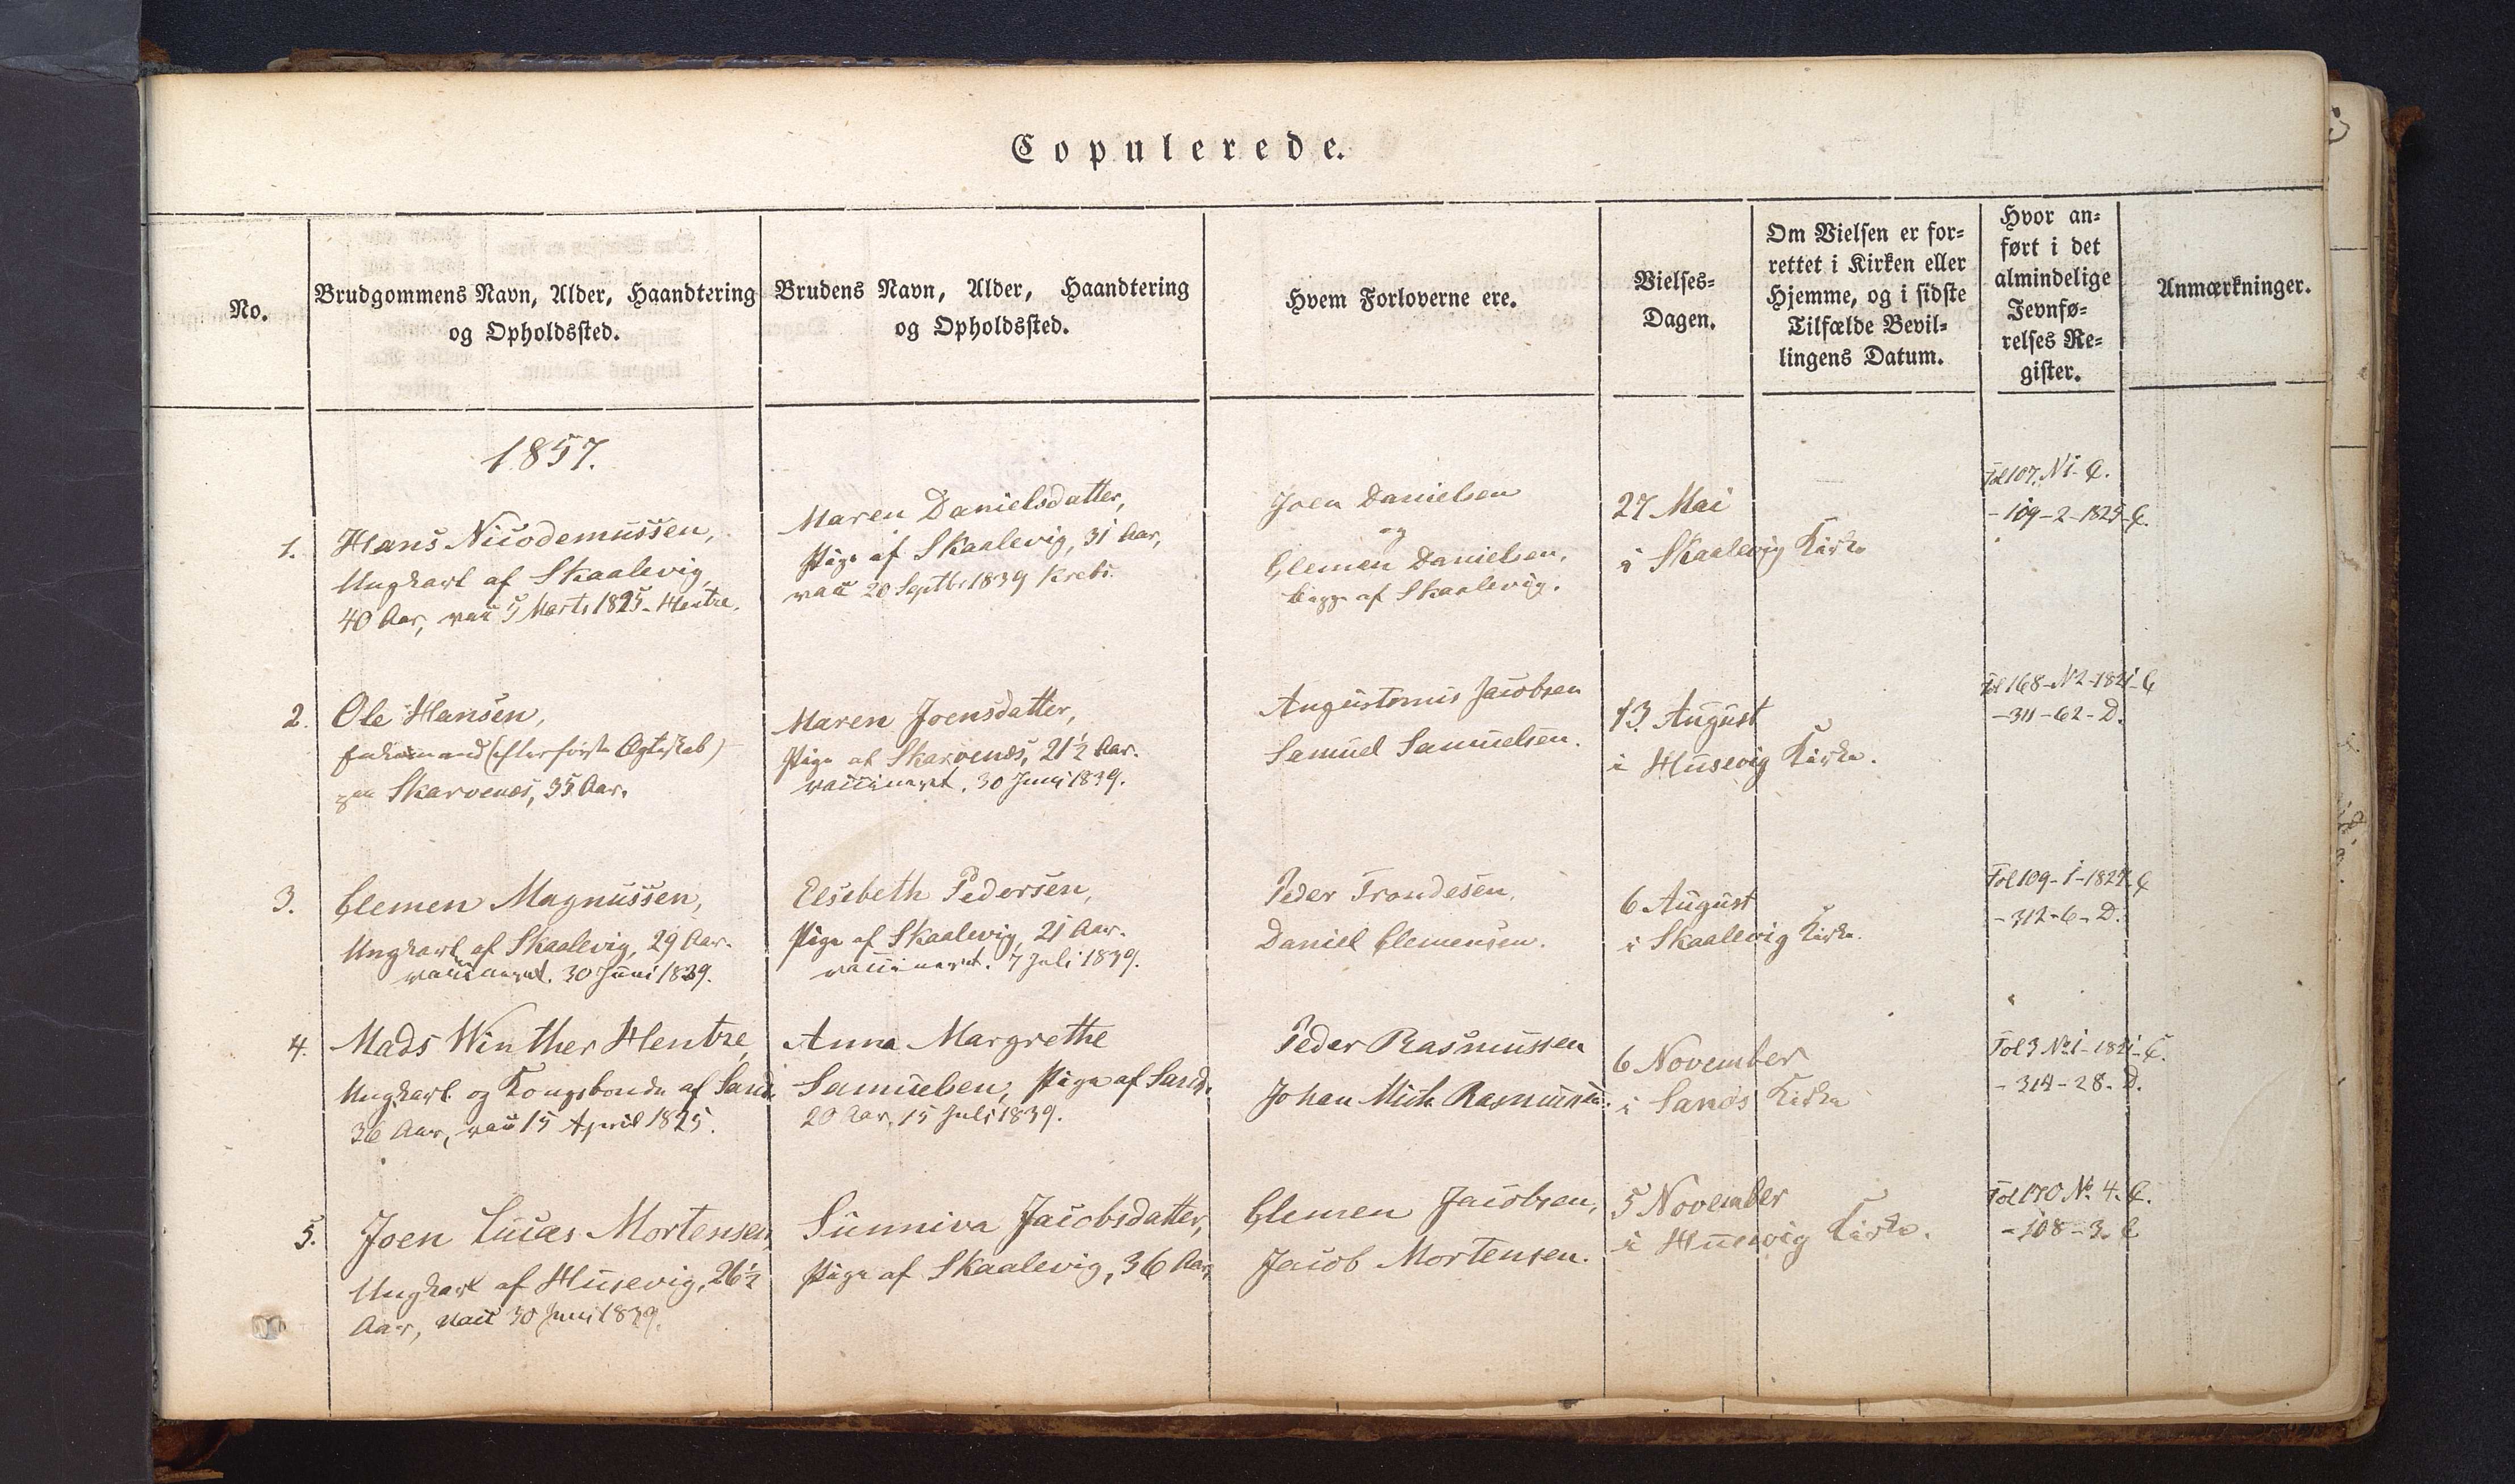 Copulerede.
No.
Brudgommens Navn, Alder, Haandtering
og Opholdssted.
Brudens Navn, Alder, Haandtering
og Opholdssted.
Hvem Forloverne ere.
Vielses-
Dagen.
Om Vielsen er for-
rettet i Kirken eller
Hjemme, og i sidste
Tilfælde Bevil-
lingens Datum.
Hvor an-
ført i det
almindelige
Jevnfø-
relses Re-
gister.
Anmærkninger.
1857.
1.
Hans Nicodemussen,
Ungkarl af Skaalevig,
40 Aar, vacc 5 Marts 1825 - Hentze.
Maren Danielsdatter,
Pige af Skaalevig, 31 Aar,
vacc 20 Septbr 1839 Krebs.
Joen Danielsen
og
Clemen Danielsen,
begge af Skaalevig.
27 Mai
i Skaalevig Kirke
Fol 107. N 1. C.
- 109 - 2 - 1825 - C.
2.
Ole Hansen,
Enkemand (efter første Ægteskab)
Skarvenæs, 35 Aar.
Maren Joensdatter,
Pige af Skarvenæs, 21½ Aar.
vaccineret. 30 Juni 1839.
Augustinus Jacobsen
Samuel Samuelsen.
13 August
i Husevig Kirke.
Fol 168 - N 2 - 1821 - C
- 311 - 62 - D.
3.
Clemen Magnussen,
Ungkarl af Skaalevig, 29 Aar.
vaccineret. 30 Juni 1839.
Elsebeth Pedersen,
Pige af Skaalevig, 21 Aar.
vaccineret. 7 Juli 1839.
Peder Trondesen.
Daniel Clemensen.
6 August
i Skaalevig Kirke.
Fol 109 - 1 - 1827 - C
- 312 - 6 - D.
4.
Mads Winther Hentze,
Ungkarl og Kongsbonde af Sand.
36 Aar, vacc 15 April 1825.
Anna Margrethe
Samuelsen, Pige af Sand.
20 Aar. 15 Juli 1839.
Peder Rasmussen
Johan Mich Rasmussen.
6 November
i Sands Kirke
Fol 3 No 1 - 1821 - C.
- 314 - 28 - D.
5.
Joen Lucas Mortensen,
Ungkarl af Husevig, 26½
Aar, vacc 30 Juni 1839.
Sunniva Jacobsdatter,
Pige af Skaalevig, 36 Aar,
Clemen Jacobsen,
Jacob Mortensen.
5 November
i Husevig Kirke.
Fol 170 No. 4. C.
- 108 - 3. C